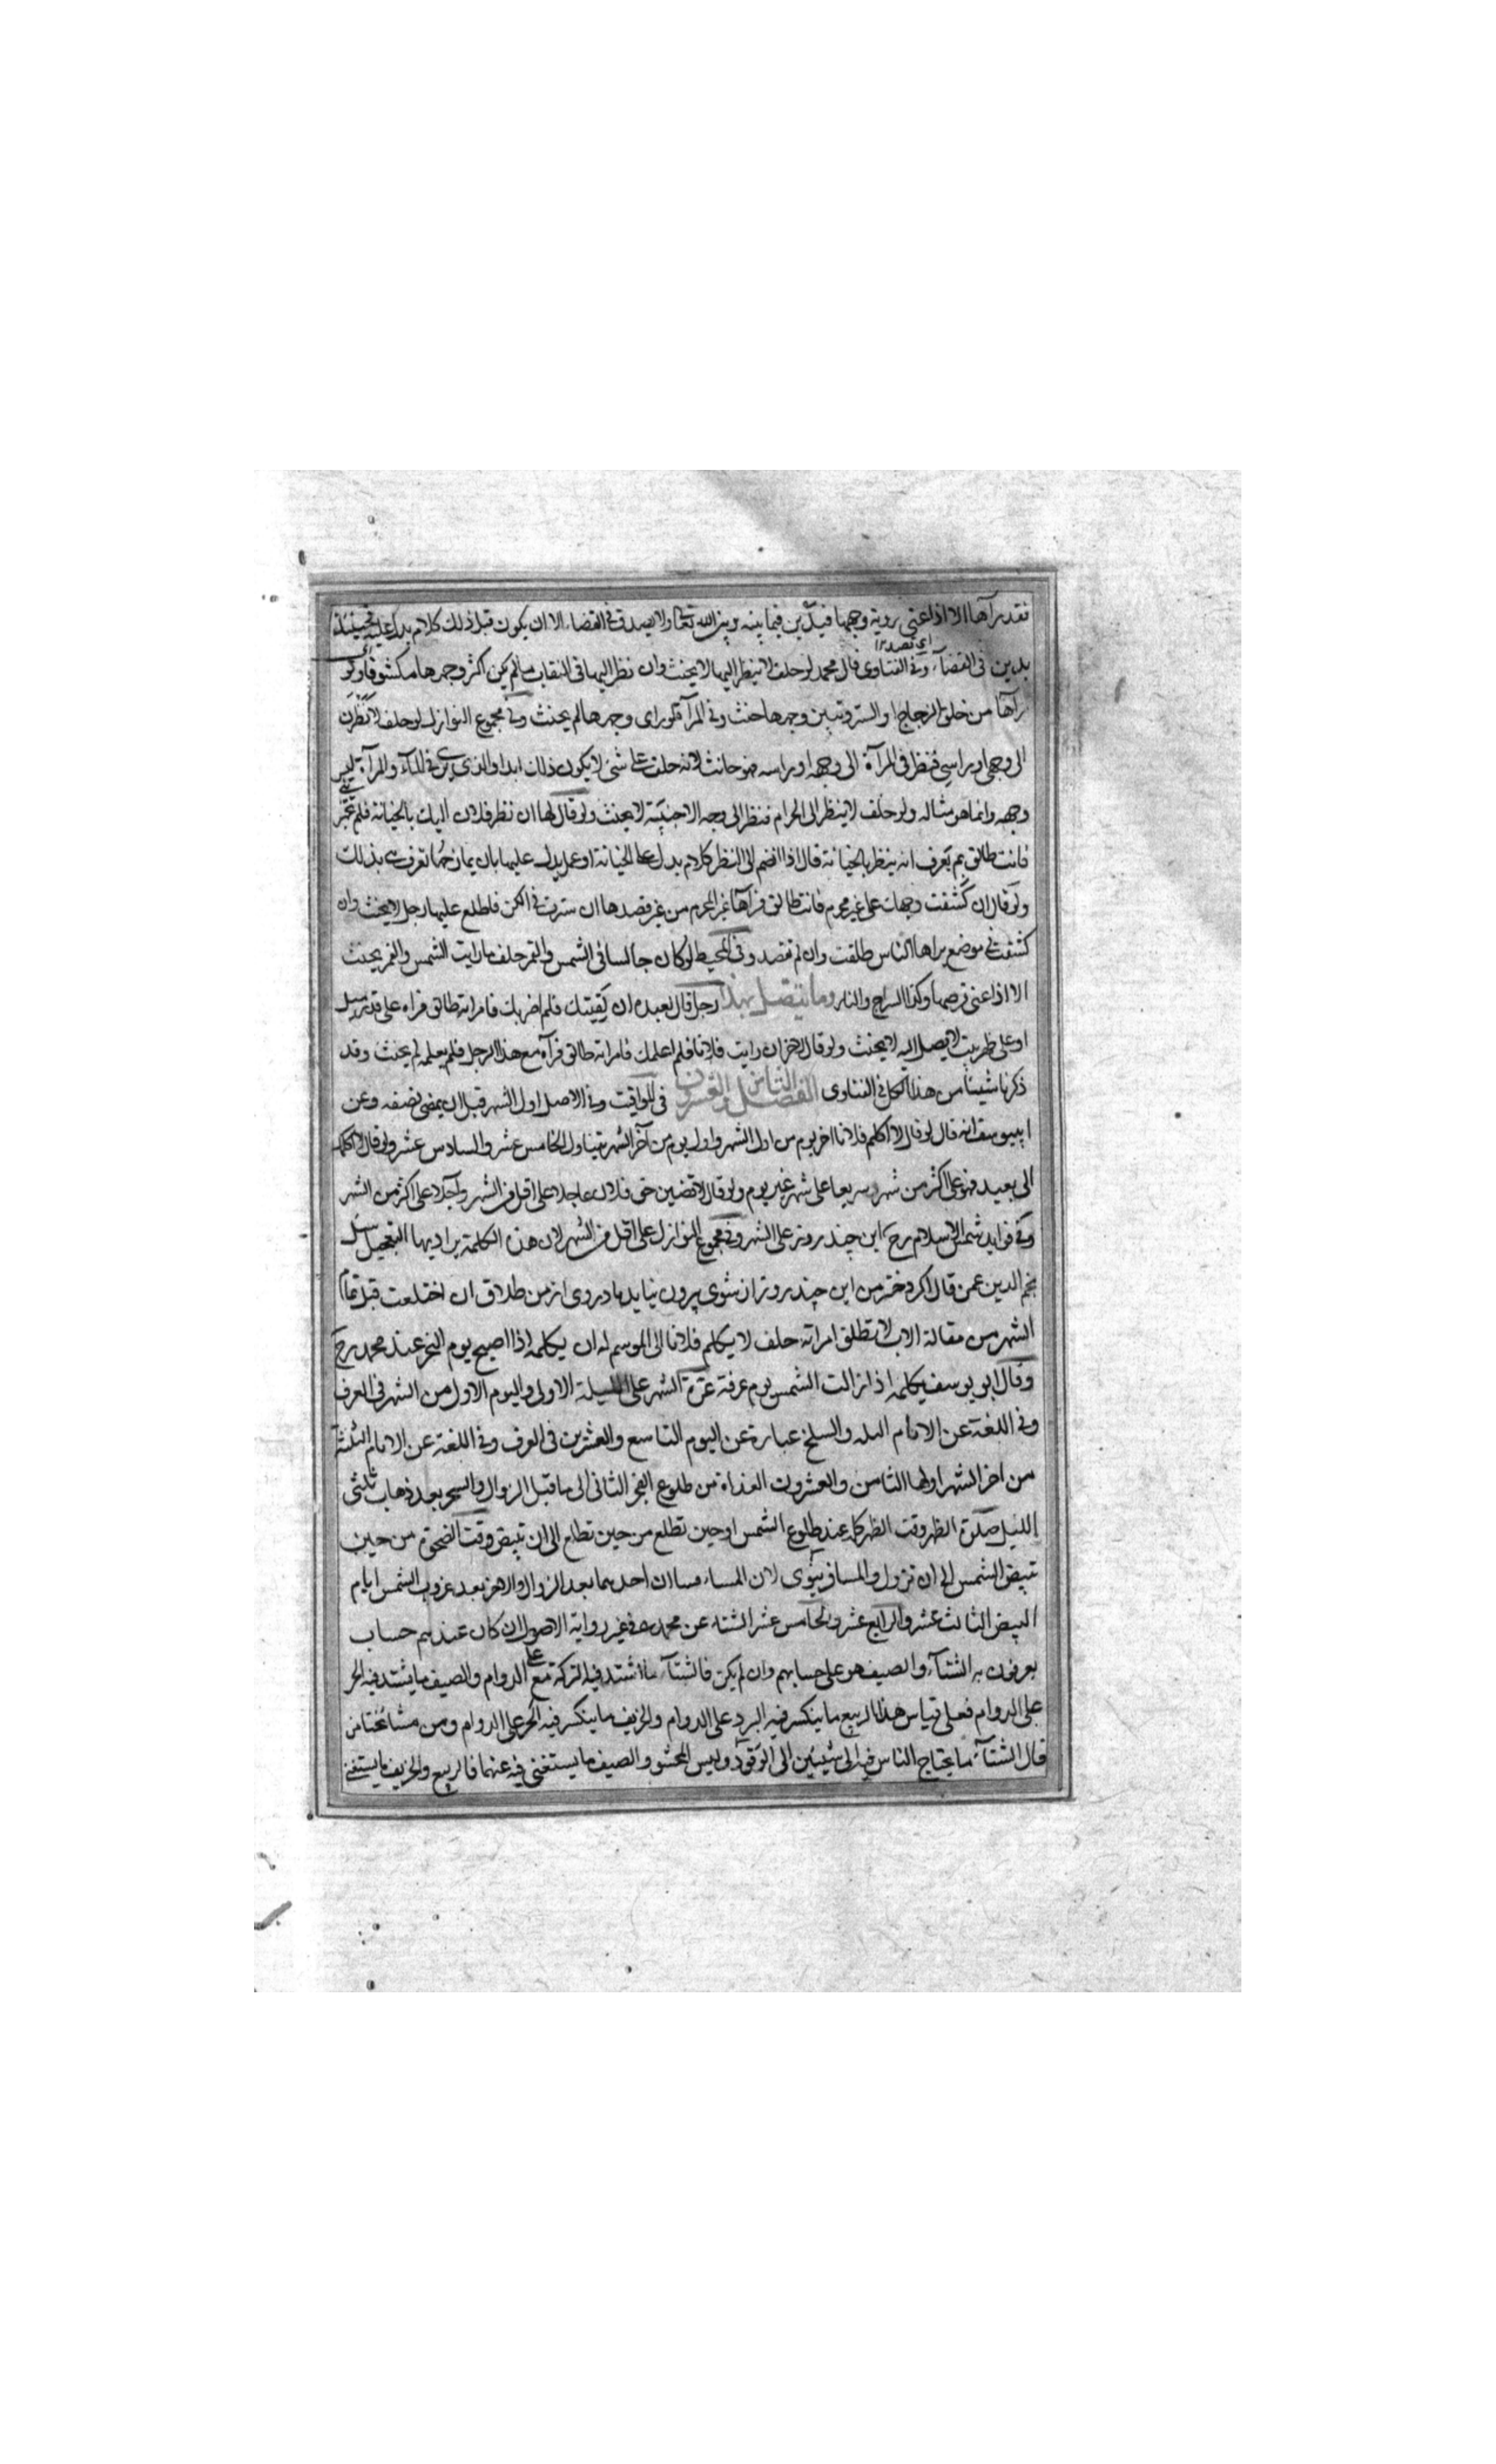 فقد رآها الا اذا عنى روية وجهها فيدين فيما بينه وبين الله تعالى ولا يصدق في القضاء الا ان يكون قبل ذلك كلام يدل عليه فحينئذ
اى تصدير
يدين فى القضاء وفى الفتاوى قال محمد لو حلف لا ينظر اليها لا يحنث وان نظر اليها فى النقاب مالم يكن اكثر وجهها مكشوفا ولو
رآها من خلف الزجاج او الستر وتبين وجهها حنث وفى المرآة لو راى وجهها لم يحنث وفى مجموع النوازل لو حلف لا تنظرن
الى وجهى او راسى فنظر فى المرآة الى وجهه او راسه فهو حانث لانه حلف على شئ لا يكون ذلك ابدا والذى يرى فى الماء والمرآة ليس
وجهه وانما هو مثاله ولو حلف لا ينظر الى الحرام فنظر الى وجه الاجنبية لا يحنث ولو قال لها ان نظر فلان اليك بالخيانة فلم
فانت طالق بم يعرف انه ينظر بالخيانة قال اذا انضم الى النظر كلام يدل على الخيانة او عمل يدل عليها بان يمازحها تعرف بذلك
ولو قال ان كشفت وجهك على غير محرم فانت طالق فرآها غير المحرم من غير قصدها ان سترت فى الكن فاطلع عليها رجل لا يحنث وان
كشفت فى موضع يراها الناس طلقت وان لم تقصد وفى المحيط لو كان جالسا فى الشمس والقمر حلف ما رايت الشمس والقمر يحنث
الا اذا عنى قرصها وكذا السراج والنار وما يتصل بهذا رجل قال لعبده ان لقيتك فلم اضربك فامراته طالق فراه على قدر ميل
او على ظهر بيت لا يصل اليه لا يحنث ولو قال لاخر ان رايت فلانا فلم اعلمك فامراته طالق فرآه مع هذا الرجل فلم يعلمه لم يحنث وقد
ذكرنا شيئا من هذا الكل فى الفتاوى الفصل الثامن والعشرون فى المواقيت وفى الاصل اول الشهر قبل ان يمضى نصفه وعن
ابييوسف انه قال لو قال لا اكلم فلانا اخر يوم من اول الشهر واول يوم من آخر الشهر يتناول الخامس عشر والسادس عشر ولو قال لا اكلمك
الى بعيد فهو على اكثر من شهر وسريعا على شهر غير يوم ولو قال لاقضين حق فلان عاجلا على اقل من الشهر وآجلا على اكثر من الشهر
وفى فوايد شمس الاسلام رح اين چند روز على الشهر وفى مجموع النوازل على اقل من الشهر لان هذه الكلمة يراد بها التعجيل سئل
نجم الدين عمن قال اكر دختر من اين چند روز از شوى بيرون نيايد مادر وى از من طلاق ان اختلعت قبل تمام
الشهر من مقالة الاب لا تطلق امراته حلف لا يكلم فلانا الى الموسم له ان يكلمه اذا اصبح يوم النحر عند محمد رح
وقال ابو يوسف يكلمه اذا زالت الشمس يوم عرفة غرة الشهر على الليلة الاولى واليوم الاول من الشهر فى العرف
وفى اللغة عن الايام الثلثة والسلخ عبارة عن اليوم التاسع والعشرين فى العرف وفى اللغة عن الايام الثلثة
من اخر الشهر اولها الثامن والعشرون الغداة من طلوع الفجر الثانى الى ما قبل الزوال والسحر بعد ذهاب ثلثى
الليل صلاة الظهر وقت الظهر كله عند طلوع الشمس او حين تطلع من حين تطلع الى ان تبيض وقت الضحوة من حين
تبيض الشمس الى ان تزول والمسا فينوى لان المساء مساان احدهما بعد الزوال والاخر بعد غروب الشمس ايام
البيض الثالث عشر والرابع عشر والخامس عشر الشتاء عن محمد فى غير رواية الاصول ان كان عندهم حساب
يعرفون به الشتاء والصيف هو على حسابهم وان لم يكن فالشتاء ما اشتد فيه على الدوام والصيف ما يشتد فيه الحر
على الدوام فعلى قياس هذا الربيع ما ينكسر فيه البرد على الدوام والخريف ما ينكسر فيه الحر على الدوام ومن مشائخنا من
قال الشتاء ما يحتاج الناس فيه الى شيئين الى الوقود ولبس المحشو والصيف ما يستغنى فيه عنهما فالربيع والخريف ما يستغنى